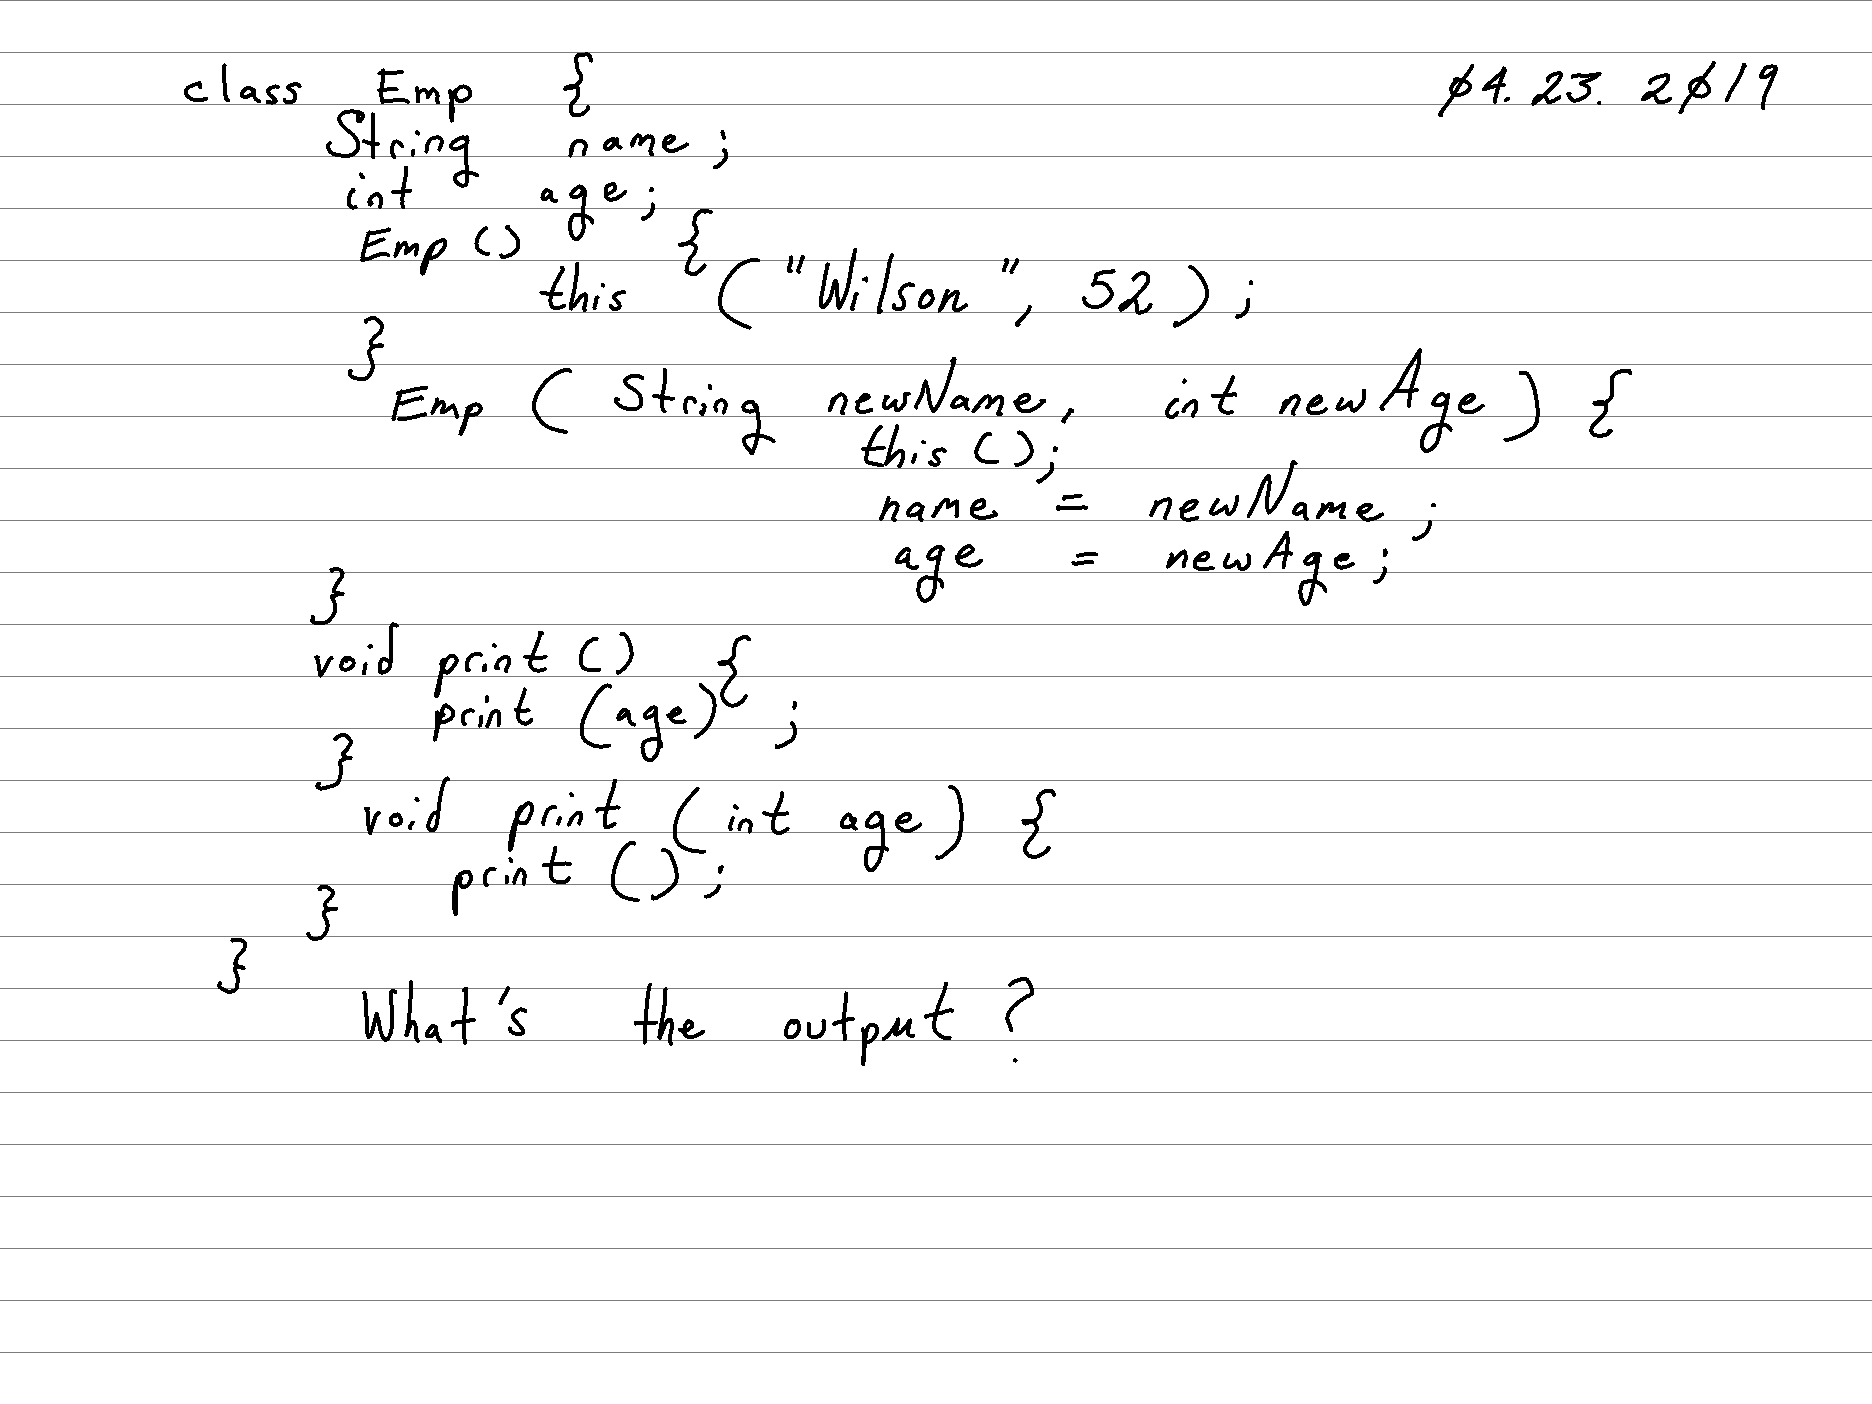 class Emp { 04.23.2019
String name;
int age;
Emp () {
this ("Wilson", 52);
}
Emp (String newName, int newAge) {
this ();
name = newName;
age = newAge;
}
void print () {
print (age);
}
void print (int age) {
print ();
}
}
What's the output?